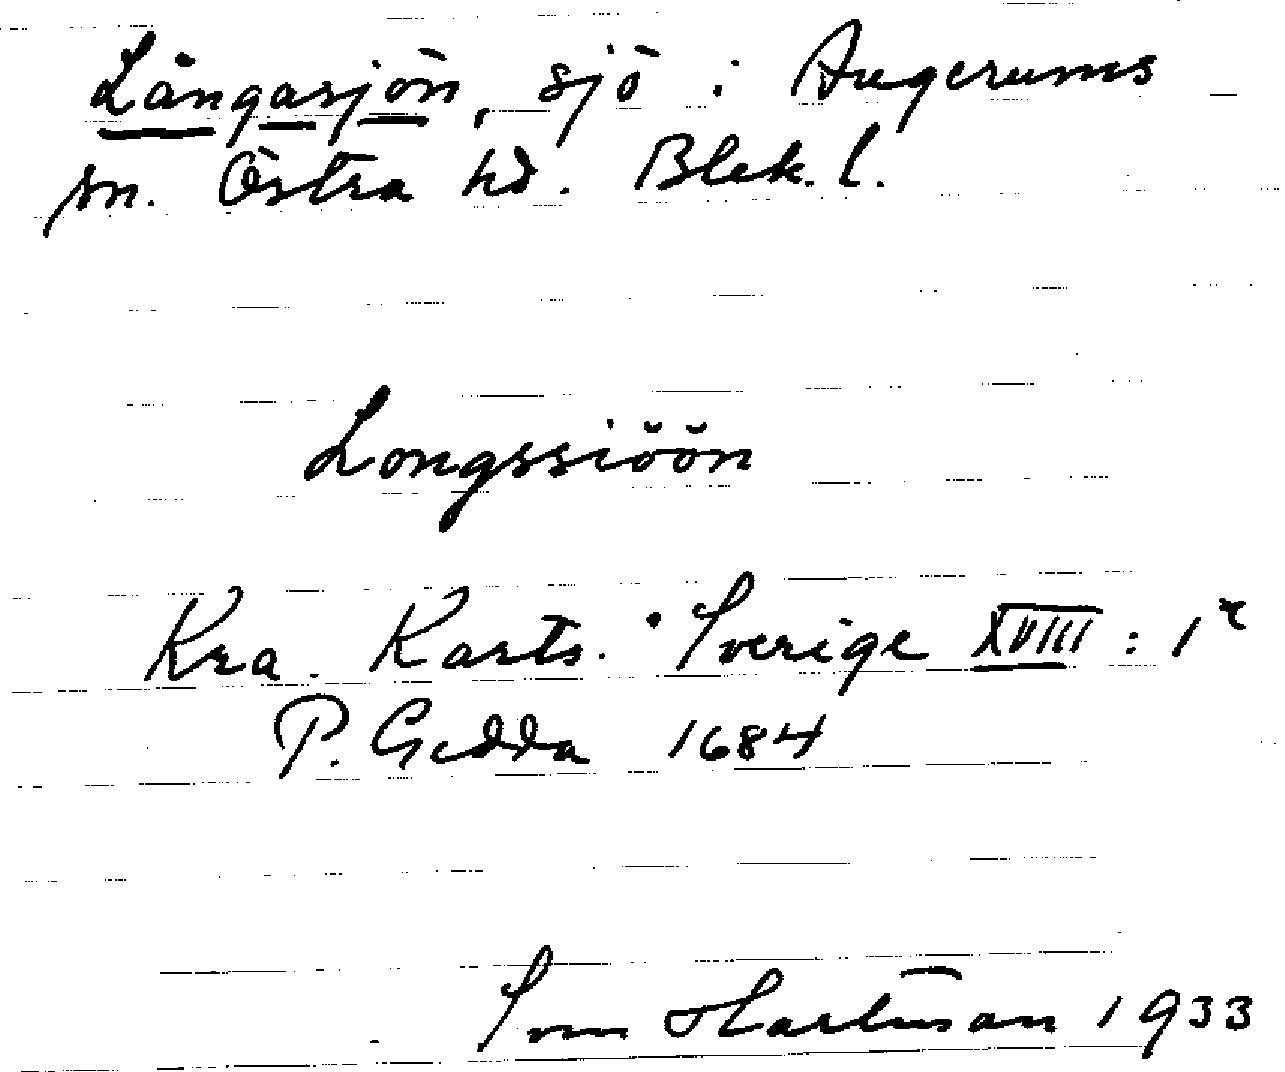 Långasjön, sjö i Augerums
sn. Östra hd. Blek. l.
Longssiöön
Kra. Karts. Sverige XVIII : 1
P. Gedda 1684
Hartman 1933